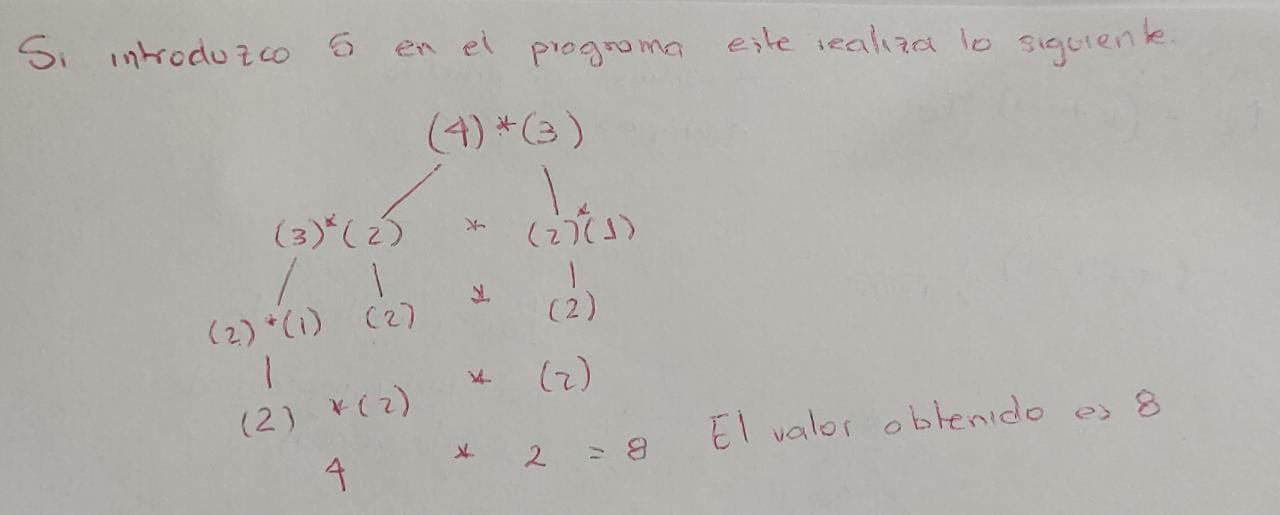 Si introduzco 5 en el programa este realiza lo siguiente.
(4) * (3)
(3) * (2) * (2) * (1)
(2) * (1) (2) * (2)
(2) * (2) * (2)
4 * 2 = 8 El valor obtenido es 8